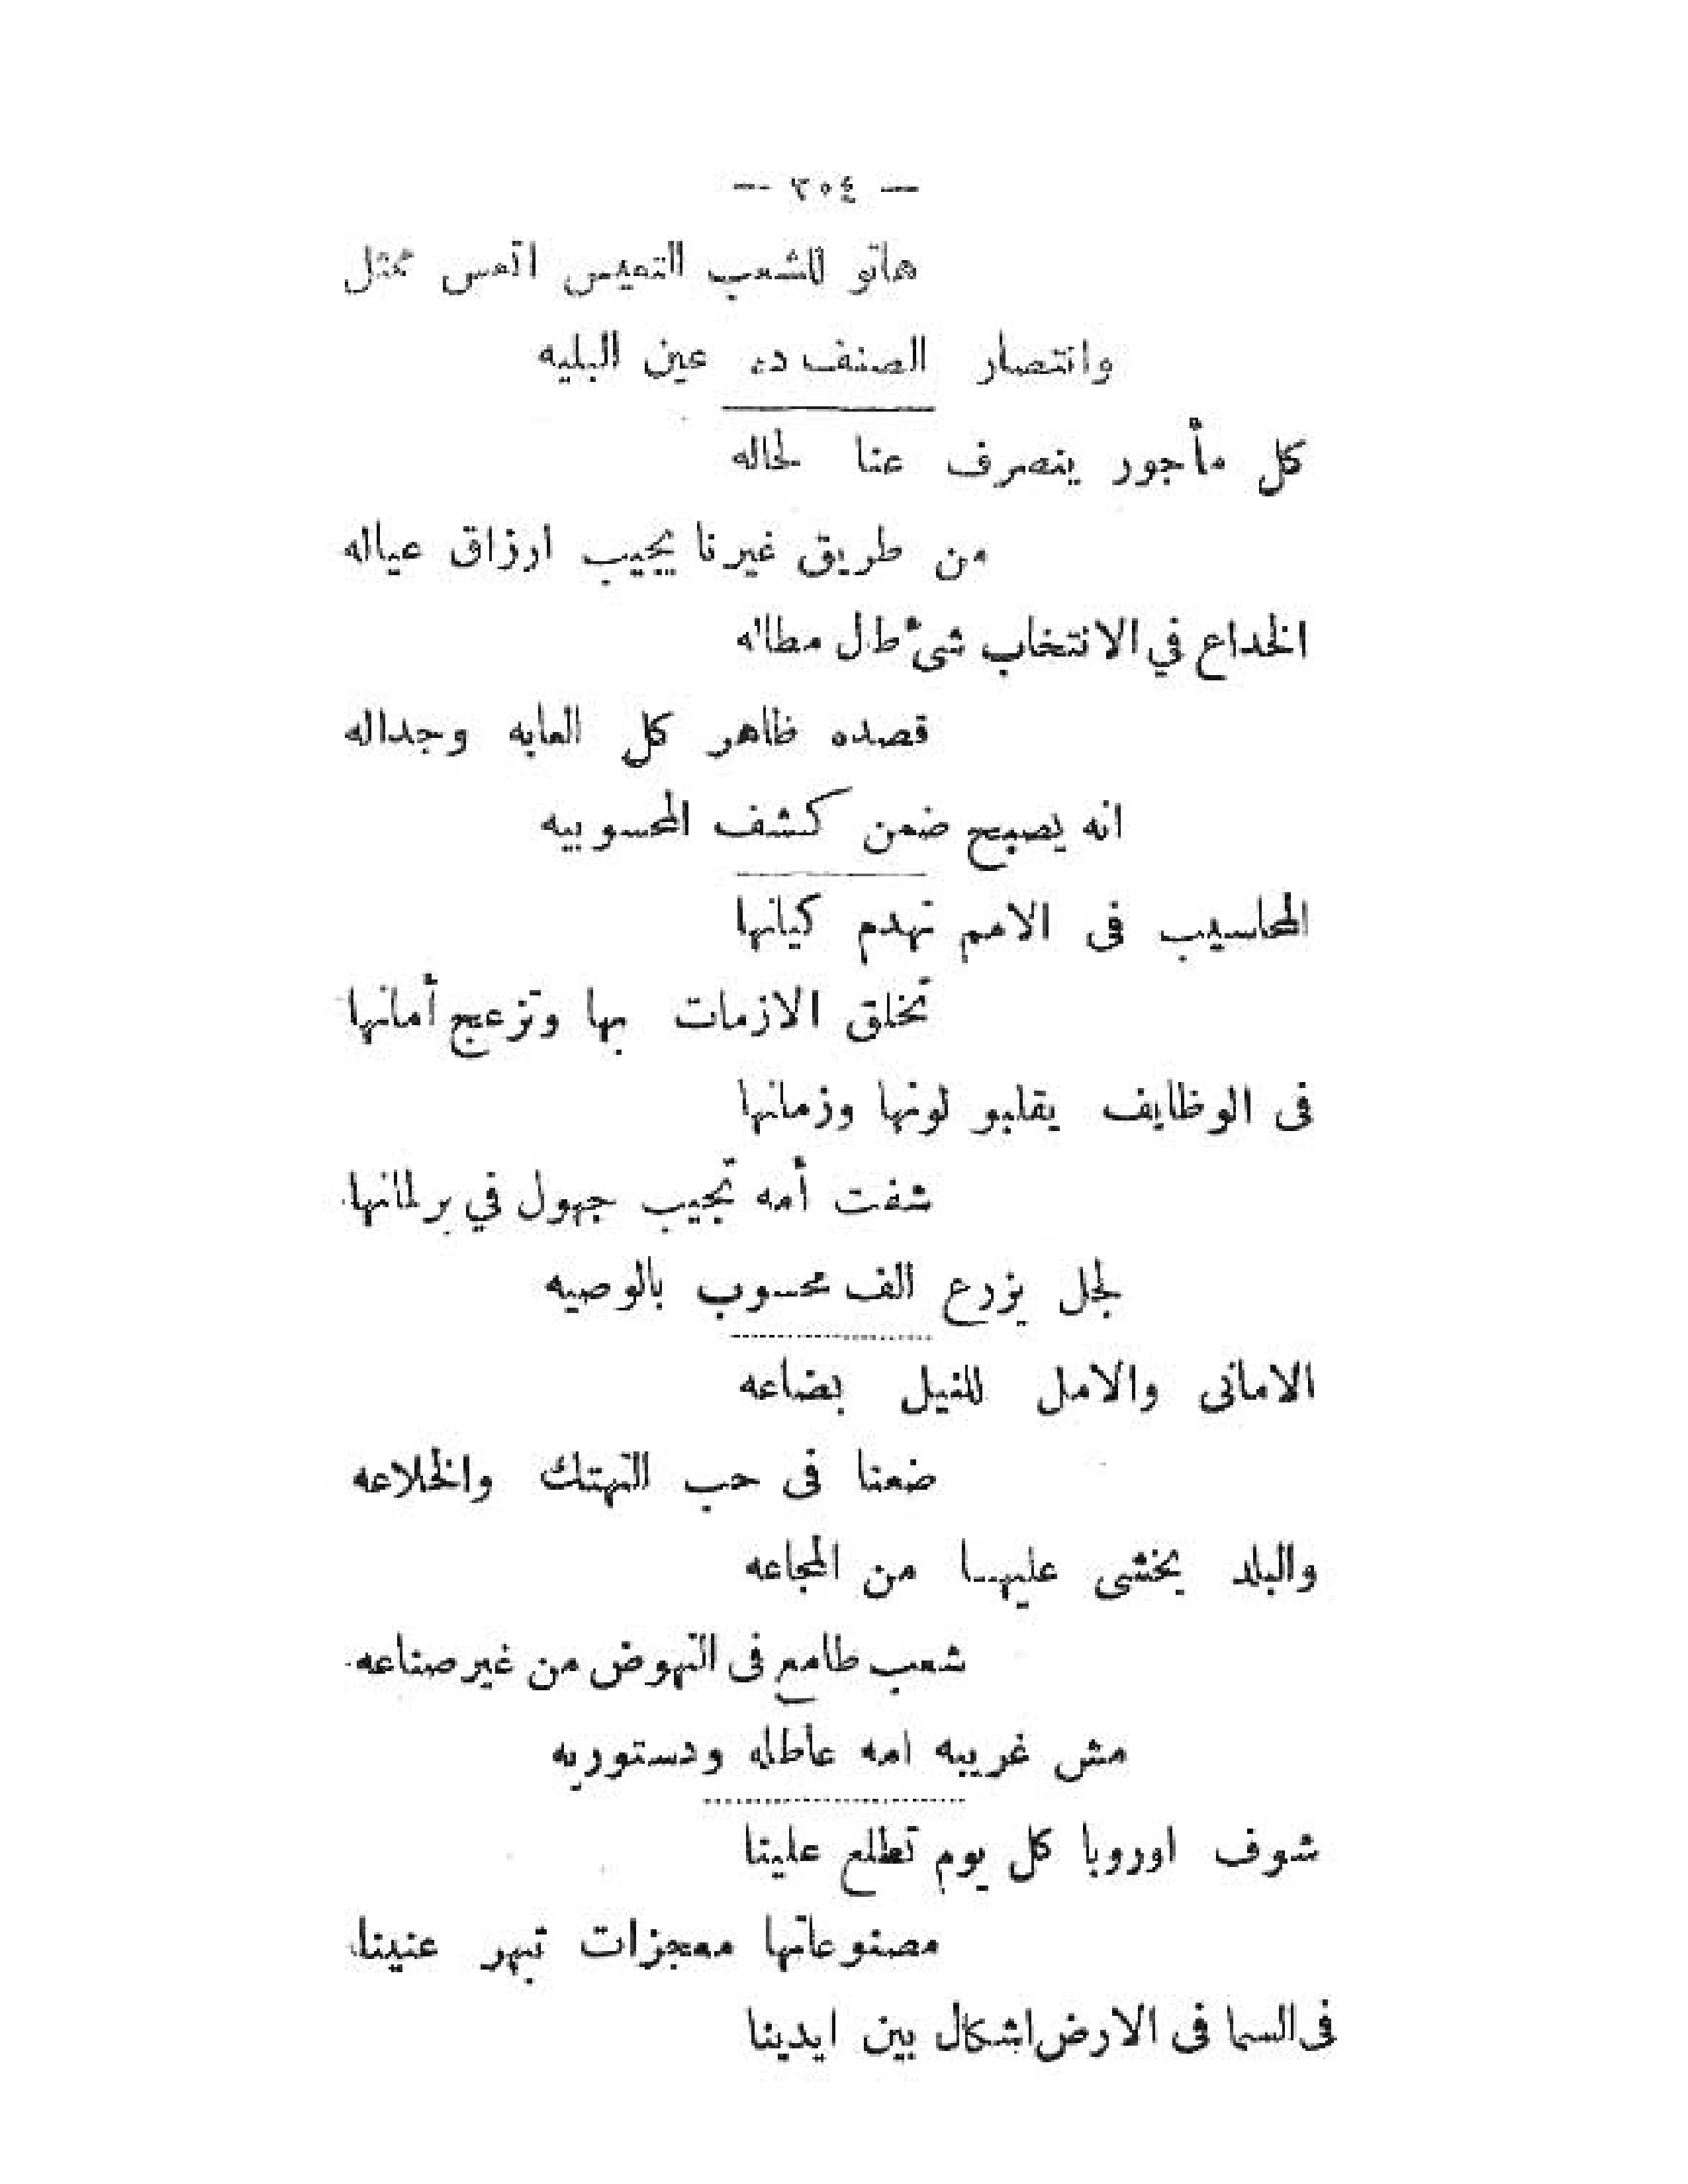 — ٢٥٤ —
هاتو للشعب التعيس اتعس ممثل
وانتصار الصنف ده عين البليه
كل مأجور ينصرف عنا لحاله
من طريق غيرنا يجيب ارزاق عياله
الخداع في الانتخاب شىء طال مطاله
قصده ظاهر كل العابه وجداله
انه يصبح ضمن كشف المحسوبيه
المحاسيب فى الامم تهدم كيانها
تخلق الازمات بها وتزعج أمانها
فى الوظايف يقلبو لونها وزمانها
شفت أمه تجيب جهول في برلمانها
لجل يزرع الف محسوب بالوصيه
الامانى والامل للنيل بضاعه
ضعنا فى حب التهتك والخلاعه
والبلد يخشى عليها من المجاعه
شعب طامع فى النهوض من غير صناعه
مش غريبه امه عاطله ودستوريه
شوف اوروبا كل يوم تطلع علينا
مصنوعاتها معجزات تبهر عنينا
فى السما فى الارض اشكال بين ايدينا